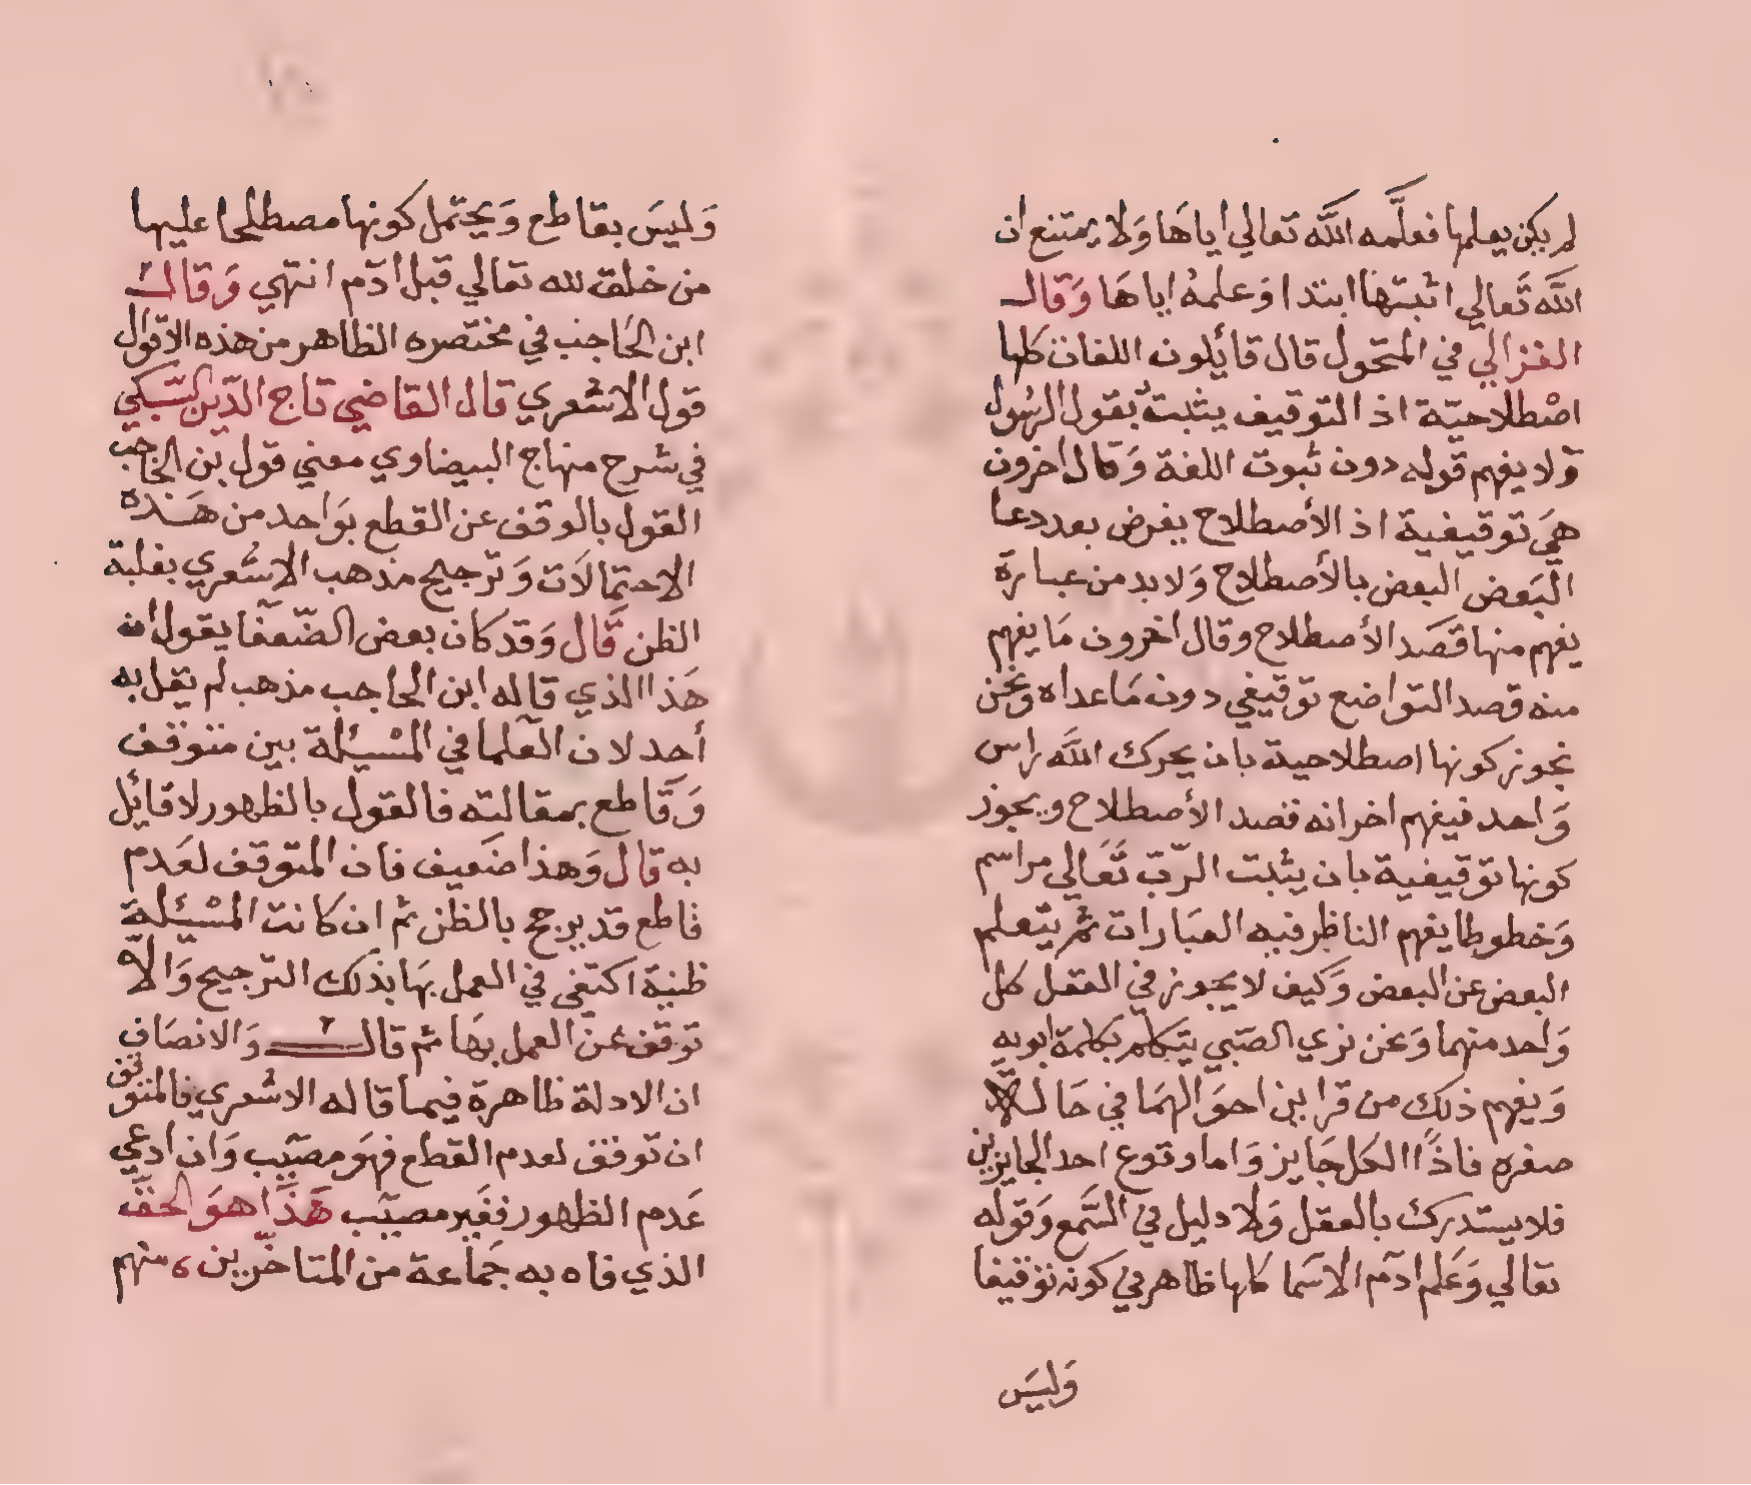 لم يكن يعلمها فعلَّمه اللَّه تعالي اياهَا وَلا يمتنع ان
اللَّه تَعالي اثبتها ابتدا وَعلمهُ اياهَا وَقال
الغزالي في المنخول قال قائلون اللغات كلها
اصْطلاحيّة اذ التوقيف يثبت بقول الرسُول
وَلا يفهم قوله دون ثبوت اللغة وَقال اخرون
هيَ توقيفية اذ الأصطلاح يفرض بعد دعا
البَعض البعض بالأصطلاح وَلا بد من عبارة
يفهم منها قصَد الأصطلاح وقال اخرون مَا يفهم
منه قصد التواضع توقيفي دون مَا عداه وَنحن
نجوز كونها اصطلاحية بان يحرك اللَّه راس
وَاحد فيفهم اخر انه قصد الأصطلاح ويجوز
كونها توقيفية بان يثبت الرّبّ تَعَالي مراسم
وَخطوطا يفهم الناظر فيه العبَارات ثم يتّعلم
البعض عن البعض وَكيف لا يجوز في العقل كل
وَاحد منهما وَنحن نري الصَبي يتكلم بكلمة ابويه
وَيفهم ذلك من قراين احوَالهمَا في حَال
صغره فاذًا الكل جَايز وَاما وقوع احد الجايزين
فلا يستدرك بالعقل وَلا دليل في السَّمع وَقوله
تعالي وَعَلم ادَم الاسَما كلها ظاهر في كونه توقيفا
وَليسَ
وَليسَ بقاطع وَيحتمل كونها مصطلحا عليها
من خلق لله تعالي قبل ادَم انتهي وَقال
ابن الحَاجب في مختصره الظاهر من هذه الاقوال
قول الاشعري قال القاضي تاج الدّين السّبكي
في شرح منهاج البيضاوي معني قول بن الحاجب
القول بالوقف عن القطع بوَاحد من هَذه
الاحتمالَات وَترجيح مذهب الاشعري بغلبة
الظن قَال وَقد كان بعض الضّعفَا يقول ان
هَذا الذي قاله ابن الحاجب مذهب لم يقل به
أحد لان العلما في المسْئلة بين متوقف
وَقَاطع بمقالته فالقول بالظهور لا قائل
به قال وَهذا ضَعيف فان المتوقف لعَدم
قاطع قد يرجح بالظن ثم ان كانت المسْئلة
ظنية اكتفي في العمل بهَا بذلك الترجيح وَالاّ
توقف عن العمل بهَا ثم قال وَالانصَاف
ان الادلة ظاهرة فيما قاله الاشعري فالمتوقف
ان توقف لعدم القطع فهوَ مصيب وَان ادعي
عَدم الظهور فغَير مصيب هَذَا هوَ الحق
الذي فاه به جَماعة من المتاخّرين منهم